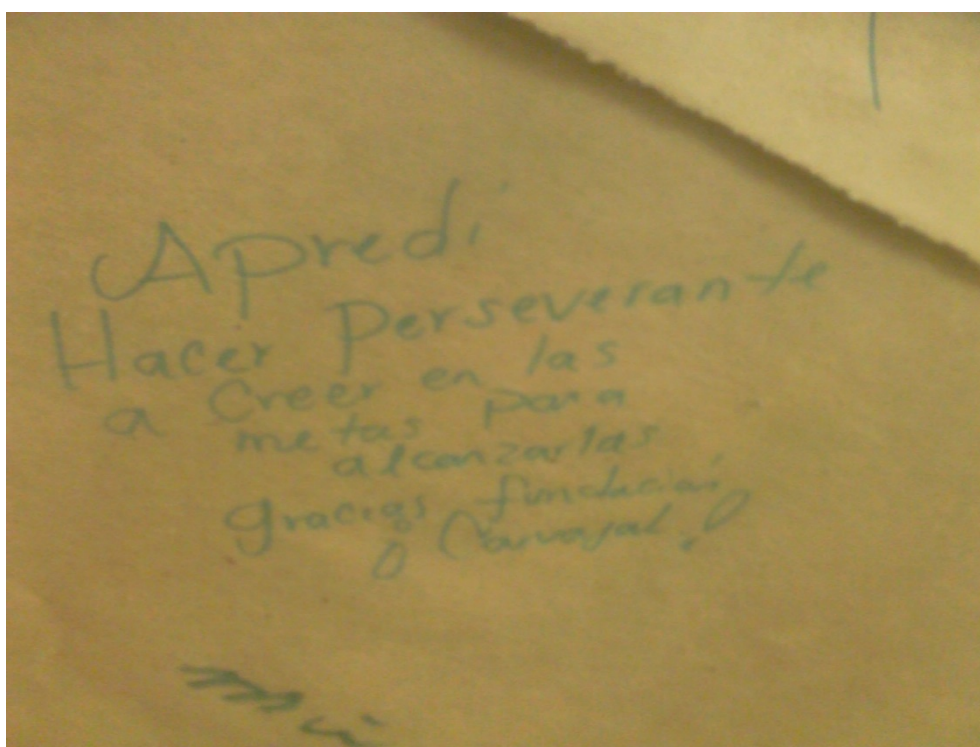 Apredi
Hacer Perseverante
a Creer en las
metas para
alcanzarlas
gracias fundación
Carvajal
mi